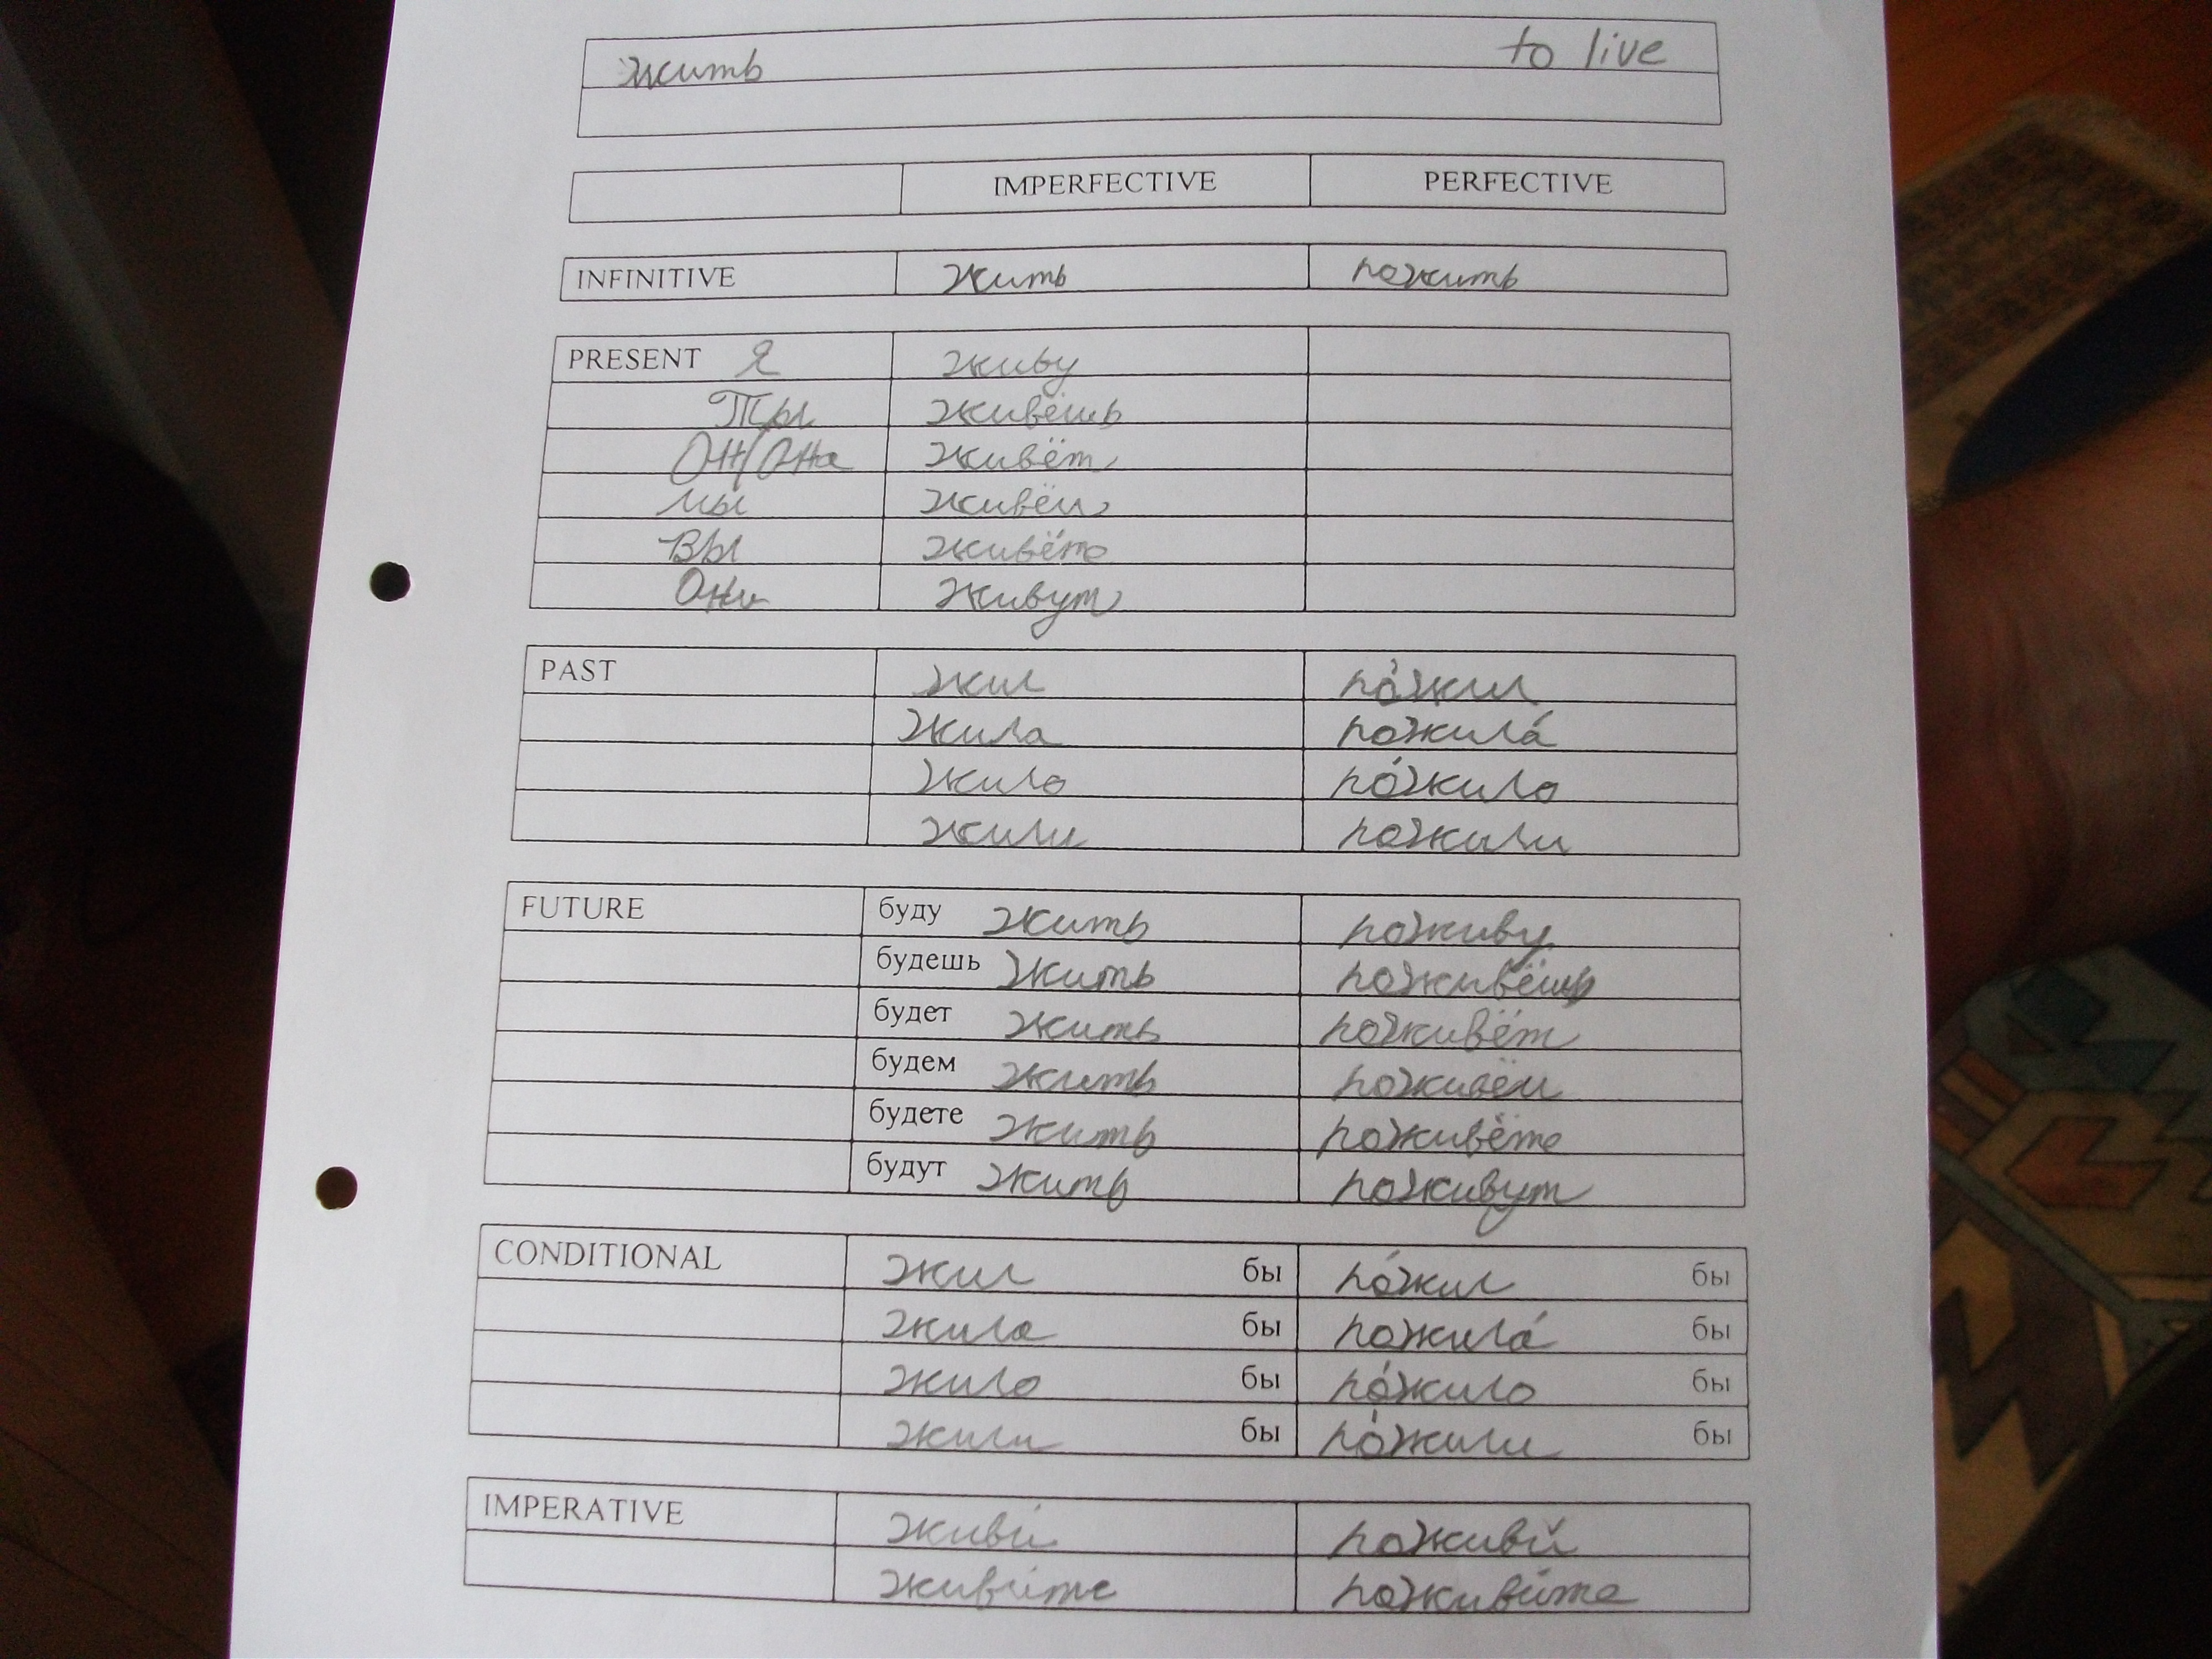 жить to live
IMPERFECTIVE PERFECTIVE
INFINITIVE жить пожить
PRESENT Я живу
Ты живёшь
Он/Она живёт
мы живём
Вы живёте
Они живут
PAST жил по́жил
жила пожила́
жило по́жило
жили пожили
FUTURE буду жить поживу
будешь жить поживёшь
будет жить поживёт
будем жить поживём
будете жить поживёте
будут жить поживут
CONDITIONAL жил бы по́жил бы
жила бы пожила́ бы
жило бы по́жило бы
жили бы по́жили бы
IMPERATIVE живи́ поживи́
живи́те поживи́те